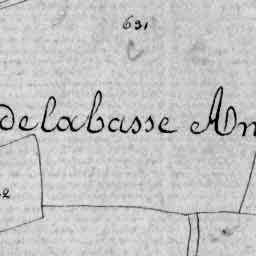 691
delabasse An